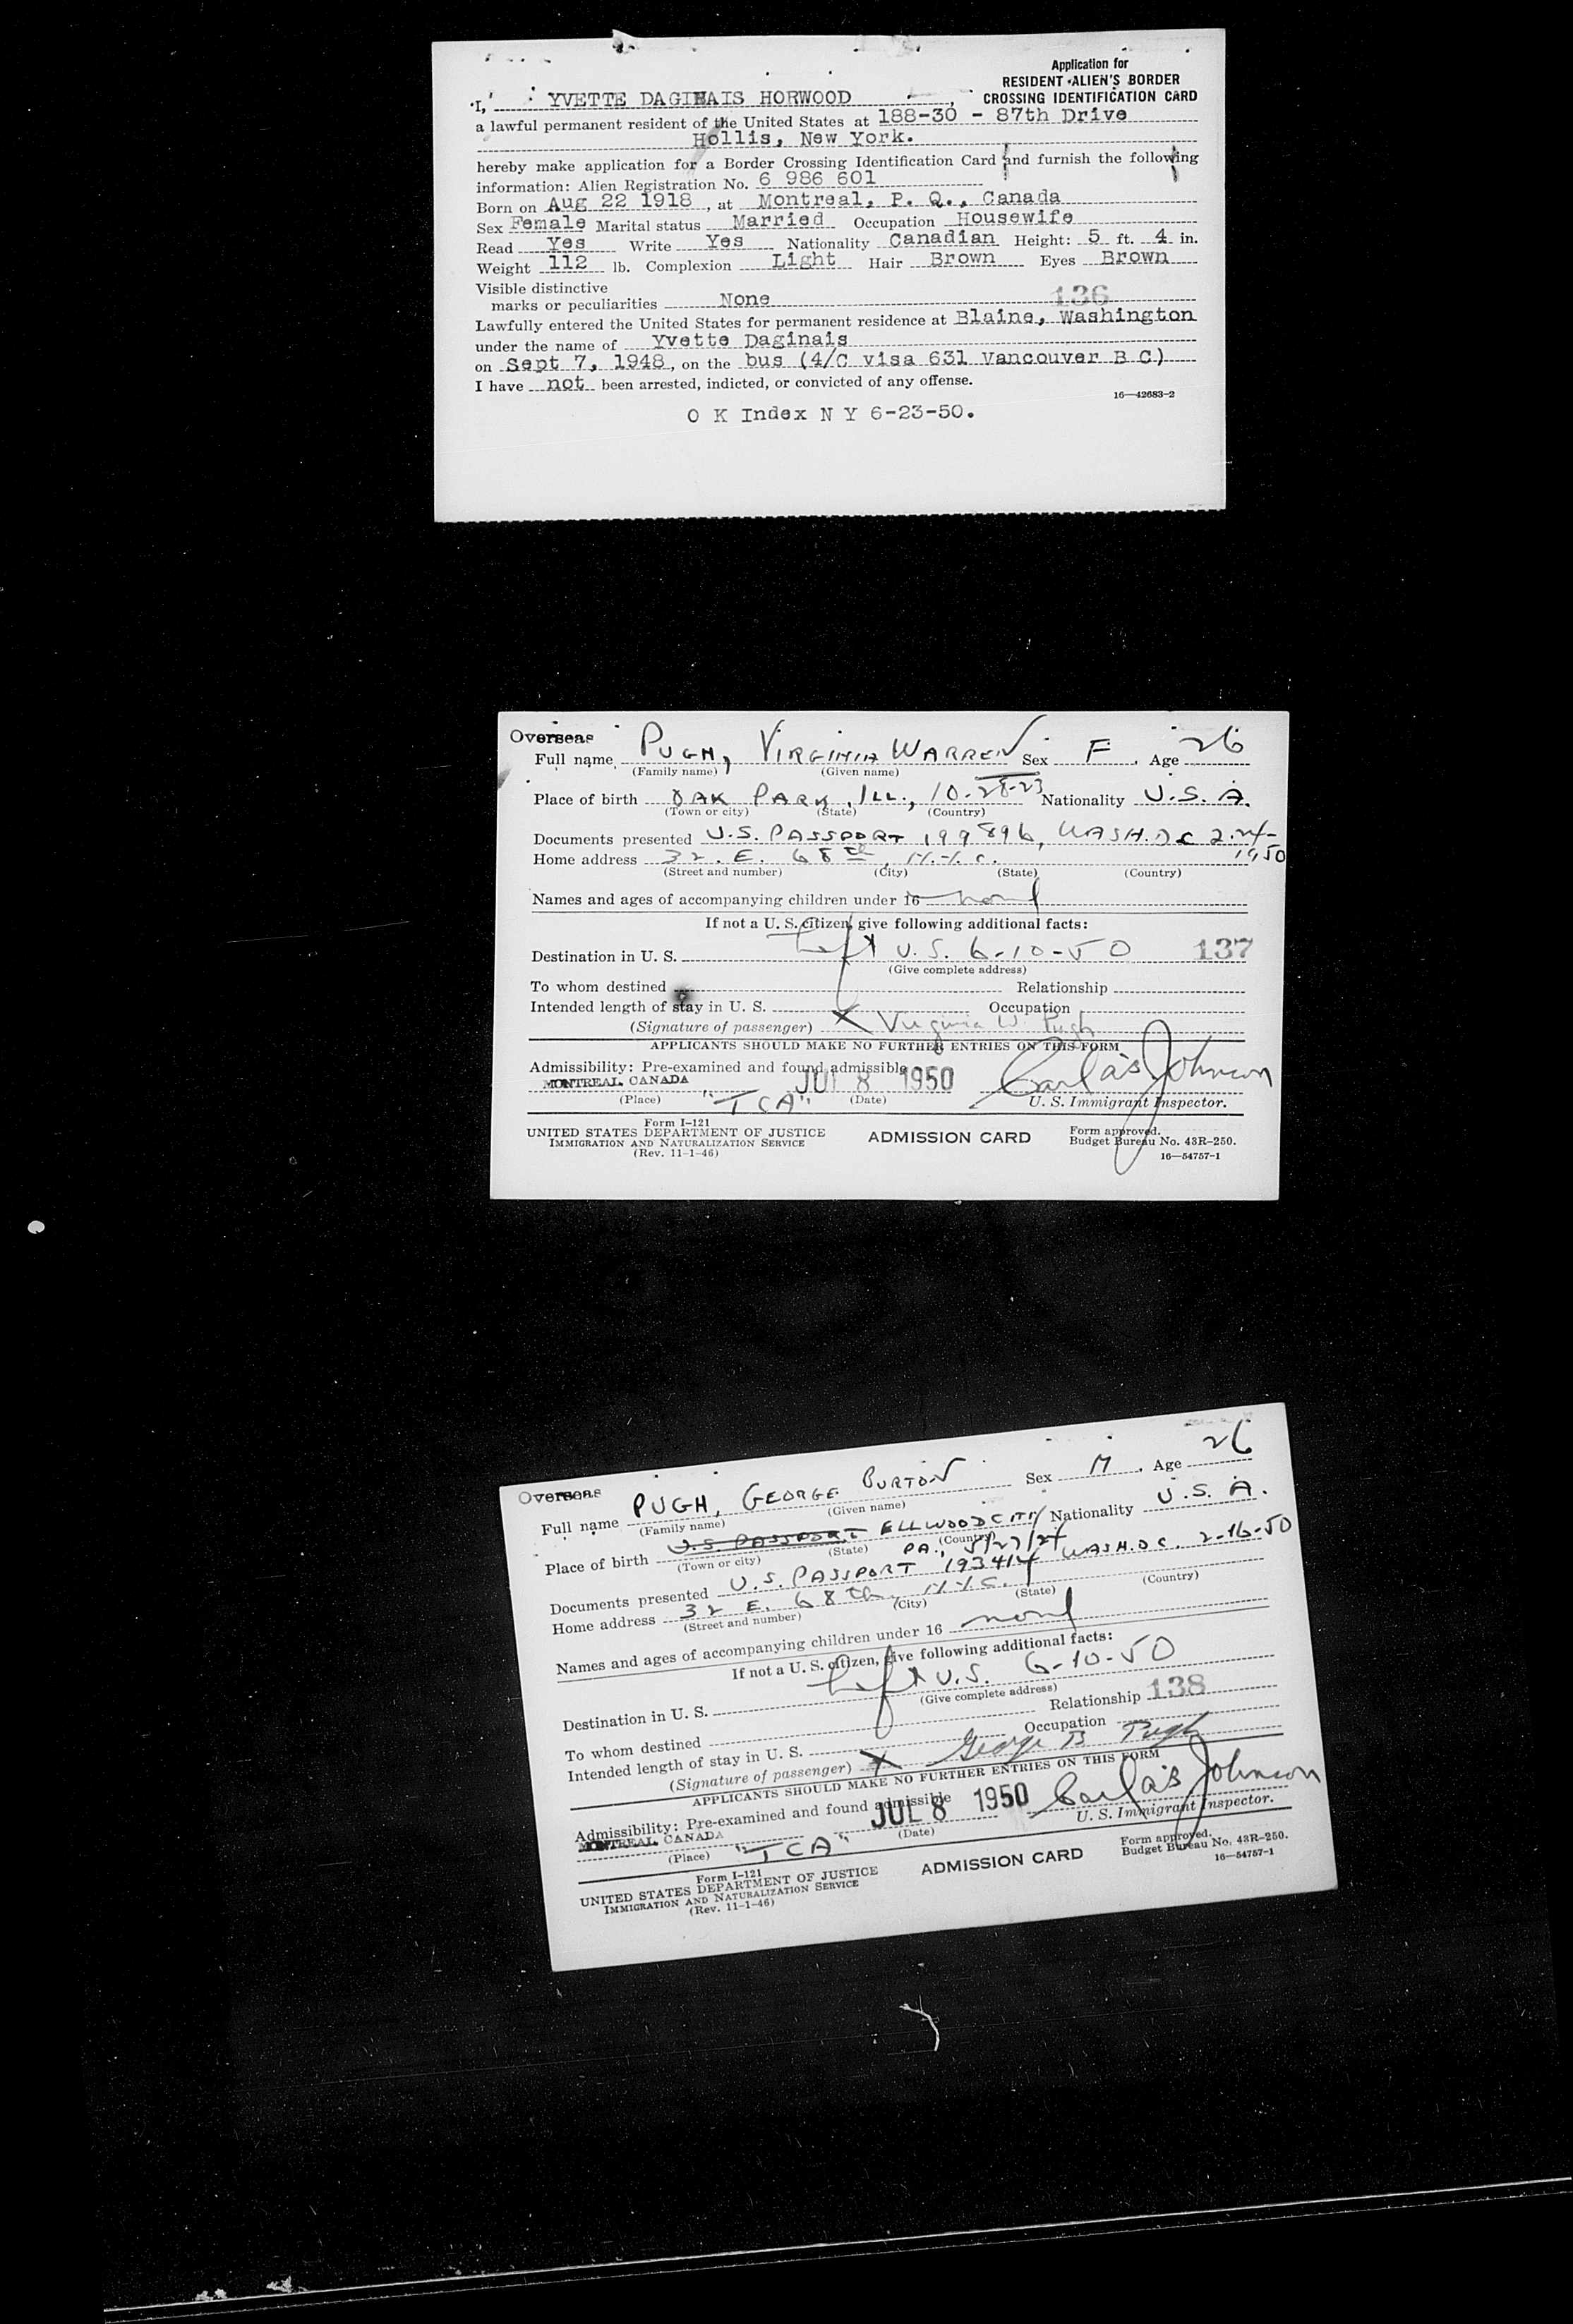 Application for
RESIDENT ALIEN'S BORDER
CROSSING IDENTIFICATION CARD
I, YVETTE DAGINAIS HORWOOD,
a lawful permanent resident of the United States at 188-30 - 87th Drive
Hollis, New York.
hereby make application for a Border Crossing Identification Card and furnish the following
information: Alien Registration No. 6 986 601
Born on Aug 22 1918, at Montreal, P. Q., Canada
Sex Female Marital status Married Occupation Housewife
Read Yes Write Yes Nationality Canadian Height: 5 ft. 4 in.
Weight 112 lb. Complexion Light Hair Brown Eyes Brown
Visible distinctive
marks or peculiarities None 136
Lawfully entered the United States for permanent residence at Blaine, Washington
under the name of Yvette Daginais
on Sept 7, 1948, on the bus (4/C visa 631 Vancouver B C)
I have not been arrested, indicted, or convicted of any offense.
16—42683-2
O K Index N Y 6-23-50.
Overseas
Full name PUGH, VIRGINIA WARREN Sex F. Age 26
(Family name) (Given name)
Place of birth OAK PARK, ILL., 10-28-23 Nationality U.S.A.
(Town or city) (State) (Country)
Documents presented U.S. PASSPORT 199896, WASH. DC 2-24-
1950
Home address 32 E. 68th, N.Y.C.
(Street and number) (City) (State) (Country)
Names and ages of accompanying children under 16 none
If not a U. S. citizen, give following additional facts:
Destination in U. S. Left U.S. 6-10-50 137
(Give complete address)
To whom destined Relationship
Intended length of stay in U. S. Occupation
(Signature of passenger) X Virginia W. Pugh
APPLICANTS SHOULD MAKE NO FURTHER ENTRIES ON THIS FORM
Admissibility: Pre-examined and found admissible
MONTREAL CANADA JUL 8 1950 Johnson
(Place) "TCA" (Date) U. S. Immigrant Inspector.
Form I-121
UNITED STATES DEPARTMENT OF JUSTICE
IMMIGRATION AND NATURALIZATION SERVICE
(Rev. 11-1-46)
ADMISSION CARD
Form approved.
Budget Bureau No. 43R-250.
16—54757-1
Overseas
Full name PUGH, GEORGE BURTON Sex M. Age 26
(Family name) (Given name)
Place of birth U.S. PASSPORT ELLWOOD CITY Nationality U.S.A.
(Town or city) (State) (Country)
PA., 5/27/24
Documents presented U.S. PASSPORT 193414 WASH. DC. 2-16-50
Home address 32 E. 68th, N.Y.C.
(Street and number) (City) (State) (Country)
Names and ages of accompanying children under 16 none
If not a U. S. citizen, give following additional facts:
Destination in U. S. Left U.S. 6-10-50
(Give complete address)
To whom destined Relationship 138
Intended length of stay in U. S. Occupation
(Signature of passenger) X George B Pugh
APPLICANTS SHOULD MAKE NO FURTHER ENTRIES ON THIS FORM
Admissibility: Pre-examined and found admissible
MONTREAL CANADA JUL 8 1950 Johnson
(Place) "TCA" (Date) U. S. Immigrant Inspector.
Form I-121
UNITED STATES DEPARTMENT OF JUSTICE
IMMIGRATION AND NATURALIZATION SERVICE
(Rev. 11-1-46)
ADMISSION CARD
Form approved.
Budget Bureau No. 43R-250.
16—54757-1